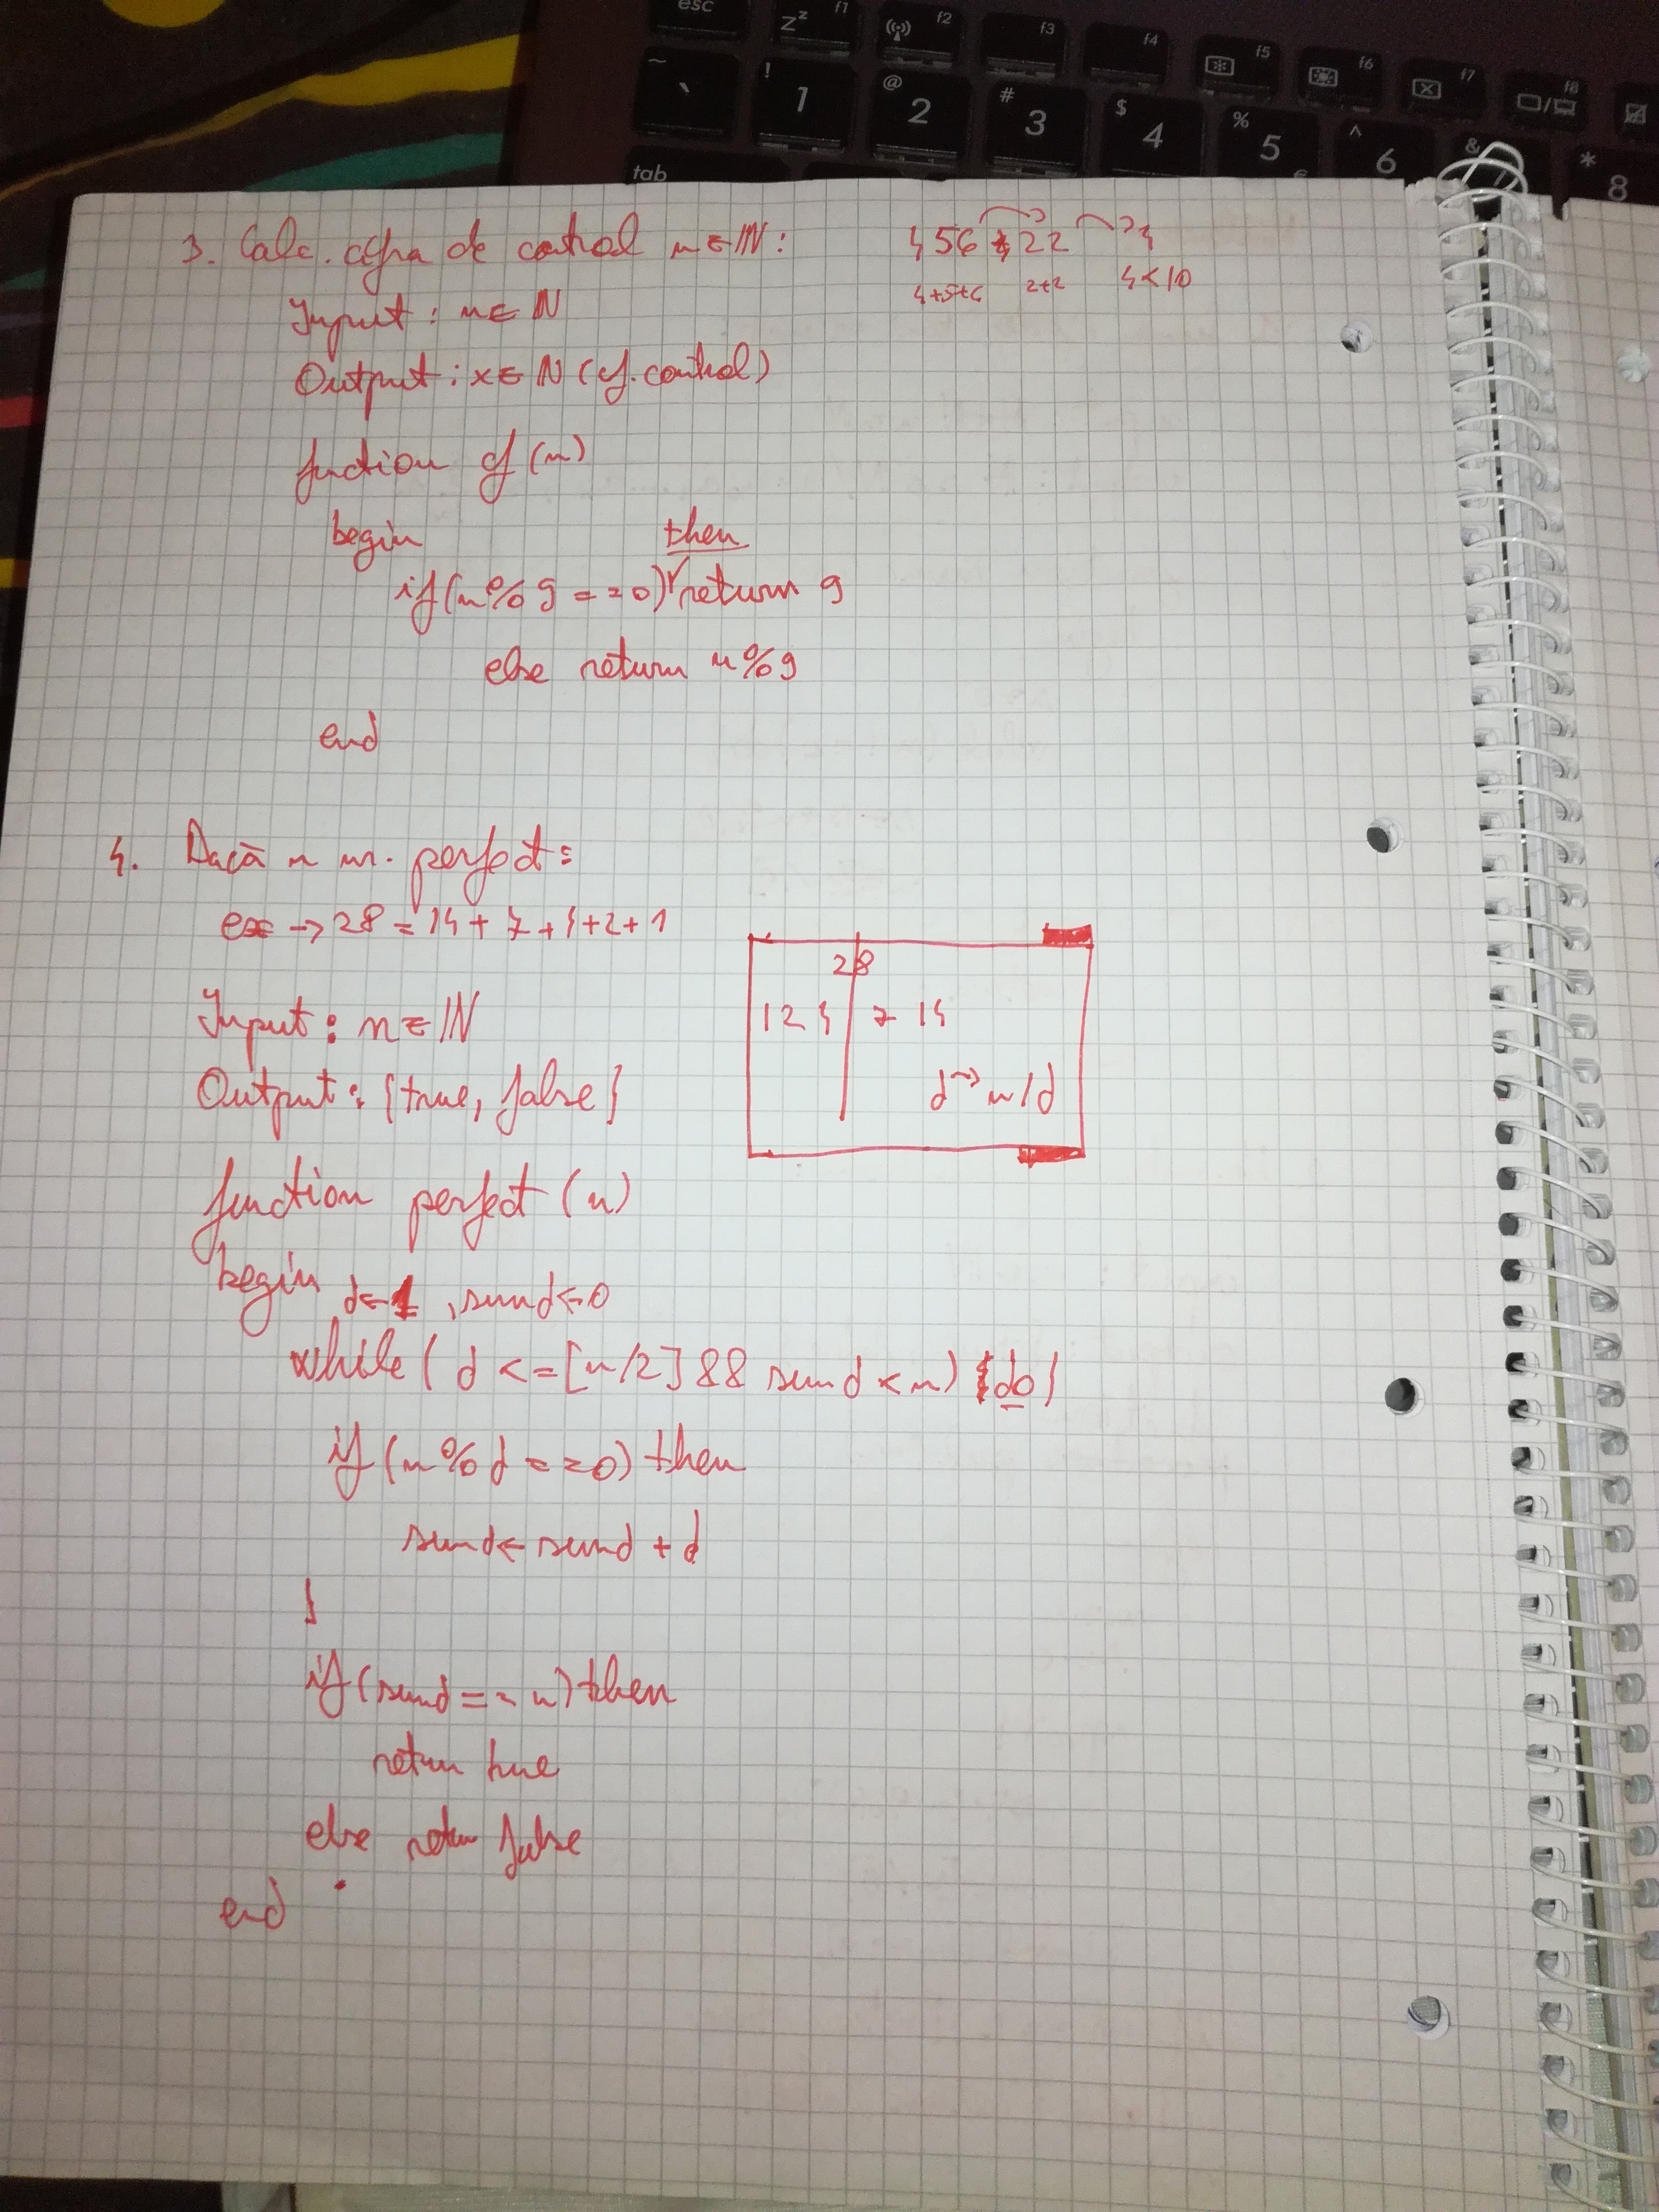 esc
z^z f1
f2
f3
f4
f5
f6
f7
f8
~ `
! 1
@ 2
# 3
$ 4
% 5
€
^ 6
&
* 8
tab
3. Calc. cifra de control n ∈ ℕ: 456 → 22 → 4
4+5+6 2+2 4<10
Input: n ∈ ℕ
Output: x ∈ ℕ (cf. control)
function cf(n)
begin
if(n%9 == 0) then return 9
else return n%9
end
4. Dacă n nr. perfect:
ex → 28 = 14 + 7 + 4 + 2 + 1
28
1 2 4 | 7 14
d → n/d
Input: n ∈ ℕ
Output: {true, false}
function perfect (n)
begin d←1, sumd←0
while( d <= [n/2] && sumd < n) {do}
if(n%d == 0) then
sumd ← sumd + d
}
if(sumd == n) then
return true
else return false
end